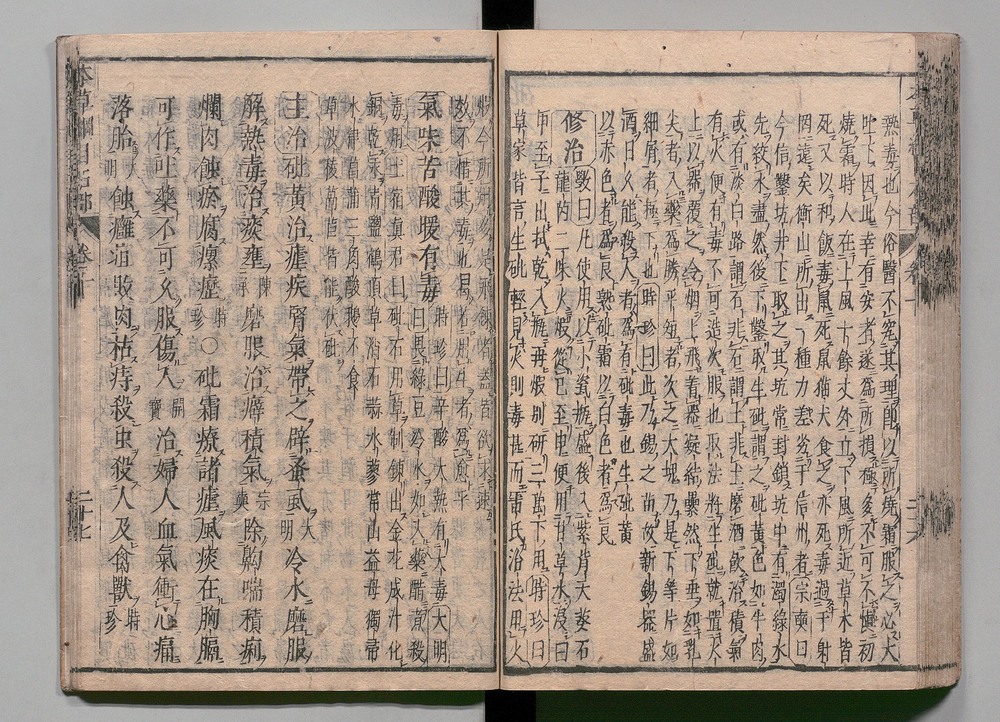 熱毒也今俗醫不究其理即以所燒霜服之必大
吐下因此幸有安者遂為所損極多不可不慎初
燒霜時人在上風十餘丈外立下風所近草木皆
死又以和飯毒鼠死鼠猫犬食之亦死毒過于射
罔遠矣衡山所出一種力差劣于信州者宗奭曰
今信鑿坑井下取之其坑常封鎖坑中有濁綠水
先絞水盡然後下鑿取生砒謂之砒黃色如牛肉
或有淡白路謂石非石謂土非土磨酒飲治積氣
有火便有毒不可造次服也取法將生砒就置火
上以器覆之令烟上飛着器凝結纍然下垂如乳
尖者入藥為勝平短者次之大塊乃是下等片如
細屑者極下也時珍曰此乃錫之苗故新錫器盛
酒日久能殺人者為有砒毒也生砒黃
以赤色者為良熟砒霜以白色者為良
修治斆曰凡使用以小瓷瓶盛後入紫背天葵石
龍芮二味火煅從巳至申便用甘草水浸
從申至子出拭乾入瓶再煅別研三萬下用時珍曰
草家皆言生砒輕見火則毒甚而雷氏治法用火
煅今所用多是飛鍊者蓋皆欲求速
效不惜其毒也曷若用生者為愈乎
氣味苦酸暖有毒時珍曰辛酸大熱有大毒大明
曰畏綠豆冷水如入藥醋煮殺
毒用土宿真君曰砒石用草制鍊出金花成汁化
銅乾汞青鹽鶴頂草消石蒜水蓼常山益母獨帚
木律菖蒲三角酸鵝不食
草波薐萵苣皆能伏砒
主治砒黃治瘧疾腎氣帶之辟蚤虱大明冷水磨服
解熱毒治痰壅陳承磨服治癖積氣宗奭除齁喘積痢
爛肉蝕瘀腐瘰癧時珍〇砒霜療諸瘧風痰在胸膈
可作吐藥不可久服傷人開寶治婦人血氣衝心痛
落胎大明蝕癰疽敗肉枯痔殺虫殺人及禽獸時珍
本草綱目石部
卷十
二十七